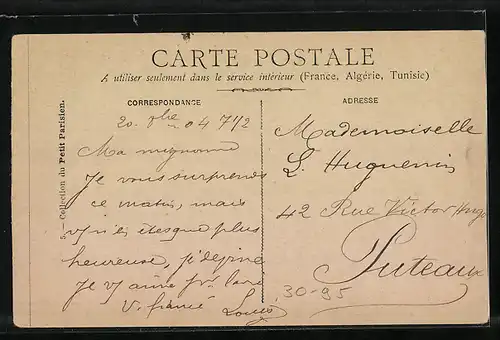 CARTE POSTALE
A utiliser seulement dans le service intérieur (France, Algérie, Tunisie)
5. — Collection du Petit Parisien.
CORRESPONDANCE
20. 04 7 1/2
Ma mignonne
Je vous surprends
ce matin, mais
plus
heureuse, j'
Je
V. fiancé Louis
ADRESSE
Mademoiselle
L. Huguenin
42 Rue Victor Hugo
Puteaux
30-95